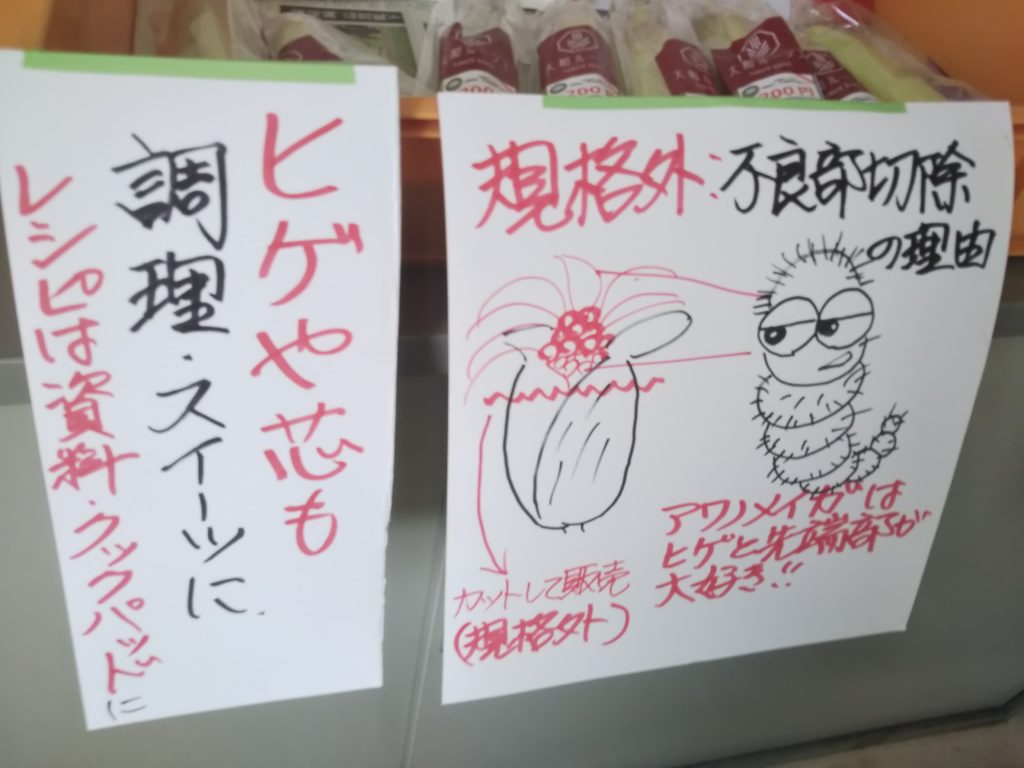 ヒゲや芯も
調理・スイーツに
レシピは資料・クックパッドに
規格外:不良部切除
の理由
アワノメイガは
ヒゲと先端部が
大好き!!
カットして販売
(規格外)
大和ル
200
大和ル
200円